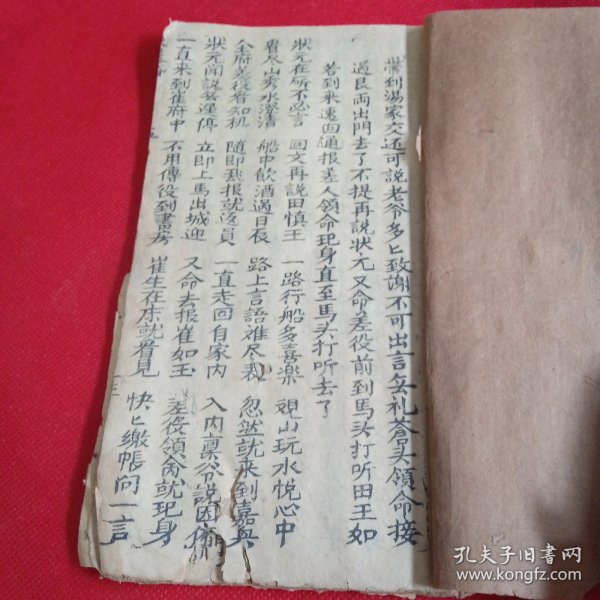 帶到湯家交还可說老爷多匕致謝不可出言無礼蒼头領命接
過艮両出門去了不提再說状元又命差役前到馬头打听田王如
若到来速回通报差人領命玘身直至馬头打听去了
狀元在所不必言 回文再說田慎王 一路行船多喜樂 观山玩水悅心中
看尽山秀水澄清 船中飲酒過日辰 路上言語难尽表 忽然就來到嘉興
全府差役看知机 隨即飛报就返員 一直走回自家內 入內禀爷說因依
狀元闻說無遲停 立即上馬出城迎 又命去报崔如玉 差役領命就玘身
一直来到崔府中 不用傳役到書房 崔生在床就看見 快匕繳帳问一言
孔夫子旧书网
www.kongfz.com